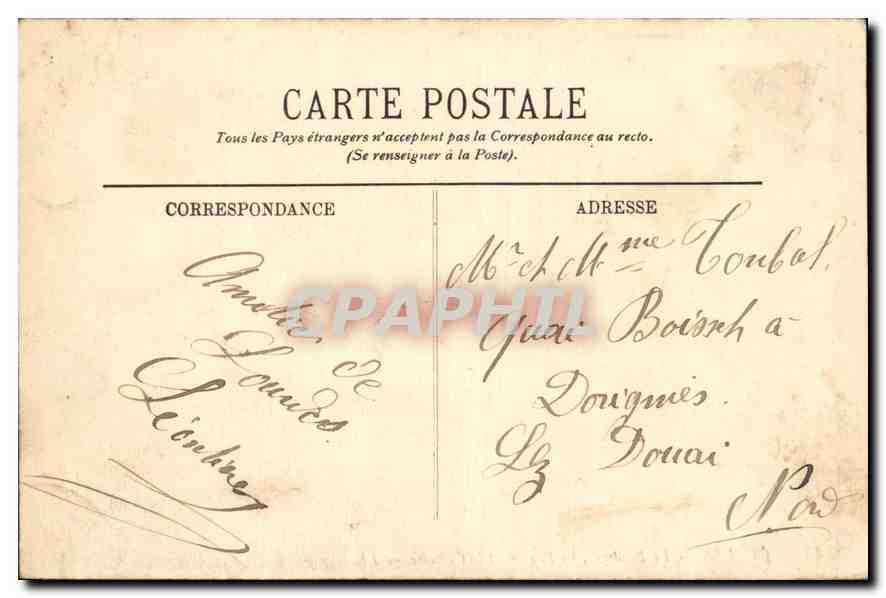 CARTE POSTALE
Tous les Pays étrangers n'acceptent pas la Correspondance au recto.
(Se renseigner à la Poste).
CORRESPONDANCE
ADRESSE
de
Lourdes.
Léontine
Mr et Mme Toubal.
Quai à
Dorignies.
Lez Douai
Nord
CPAPHIL